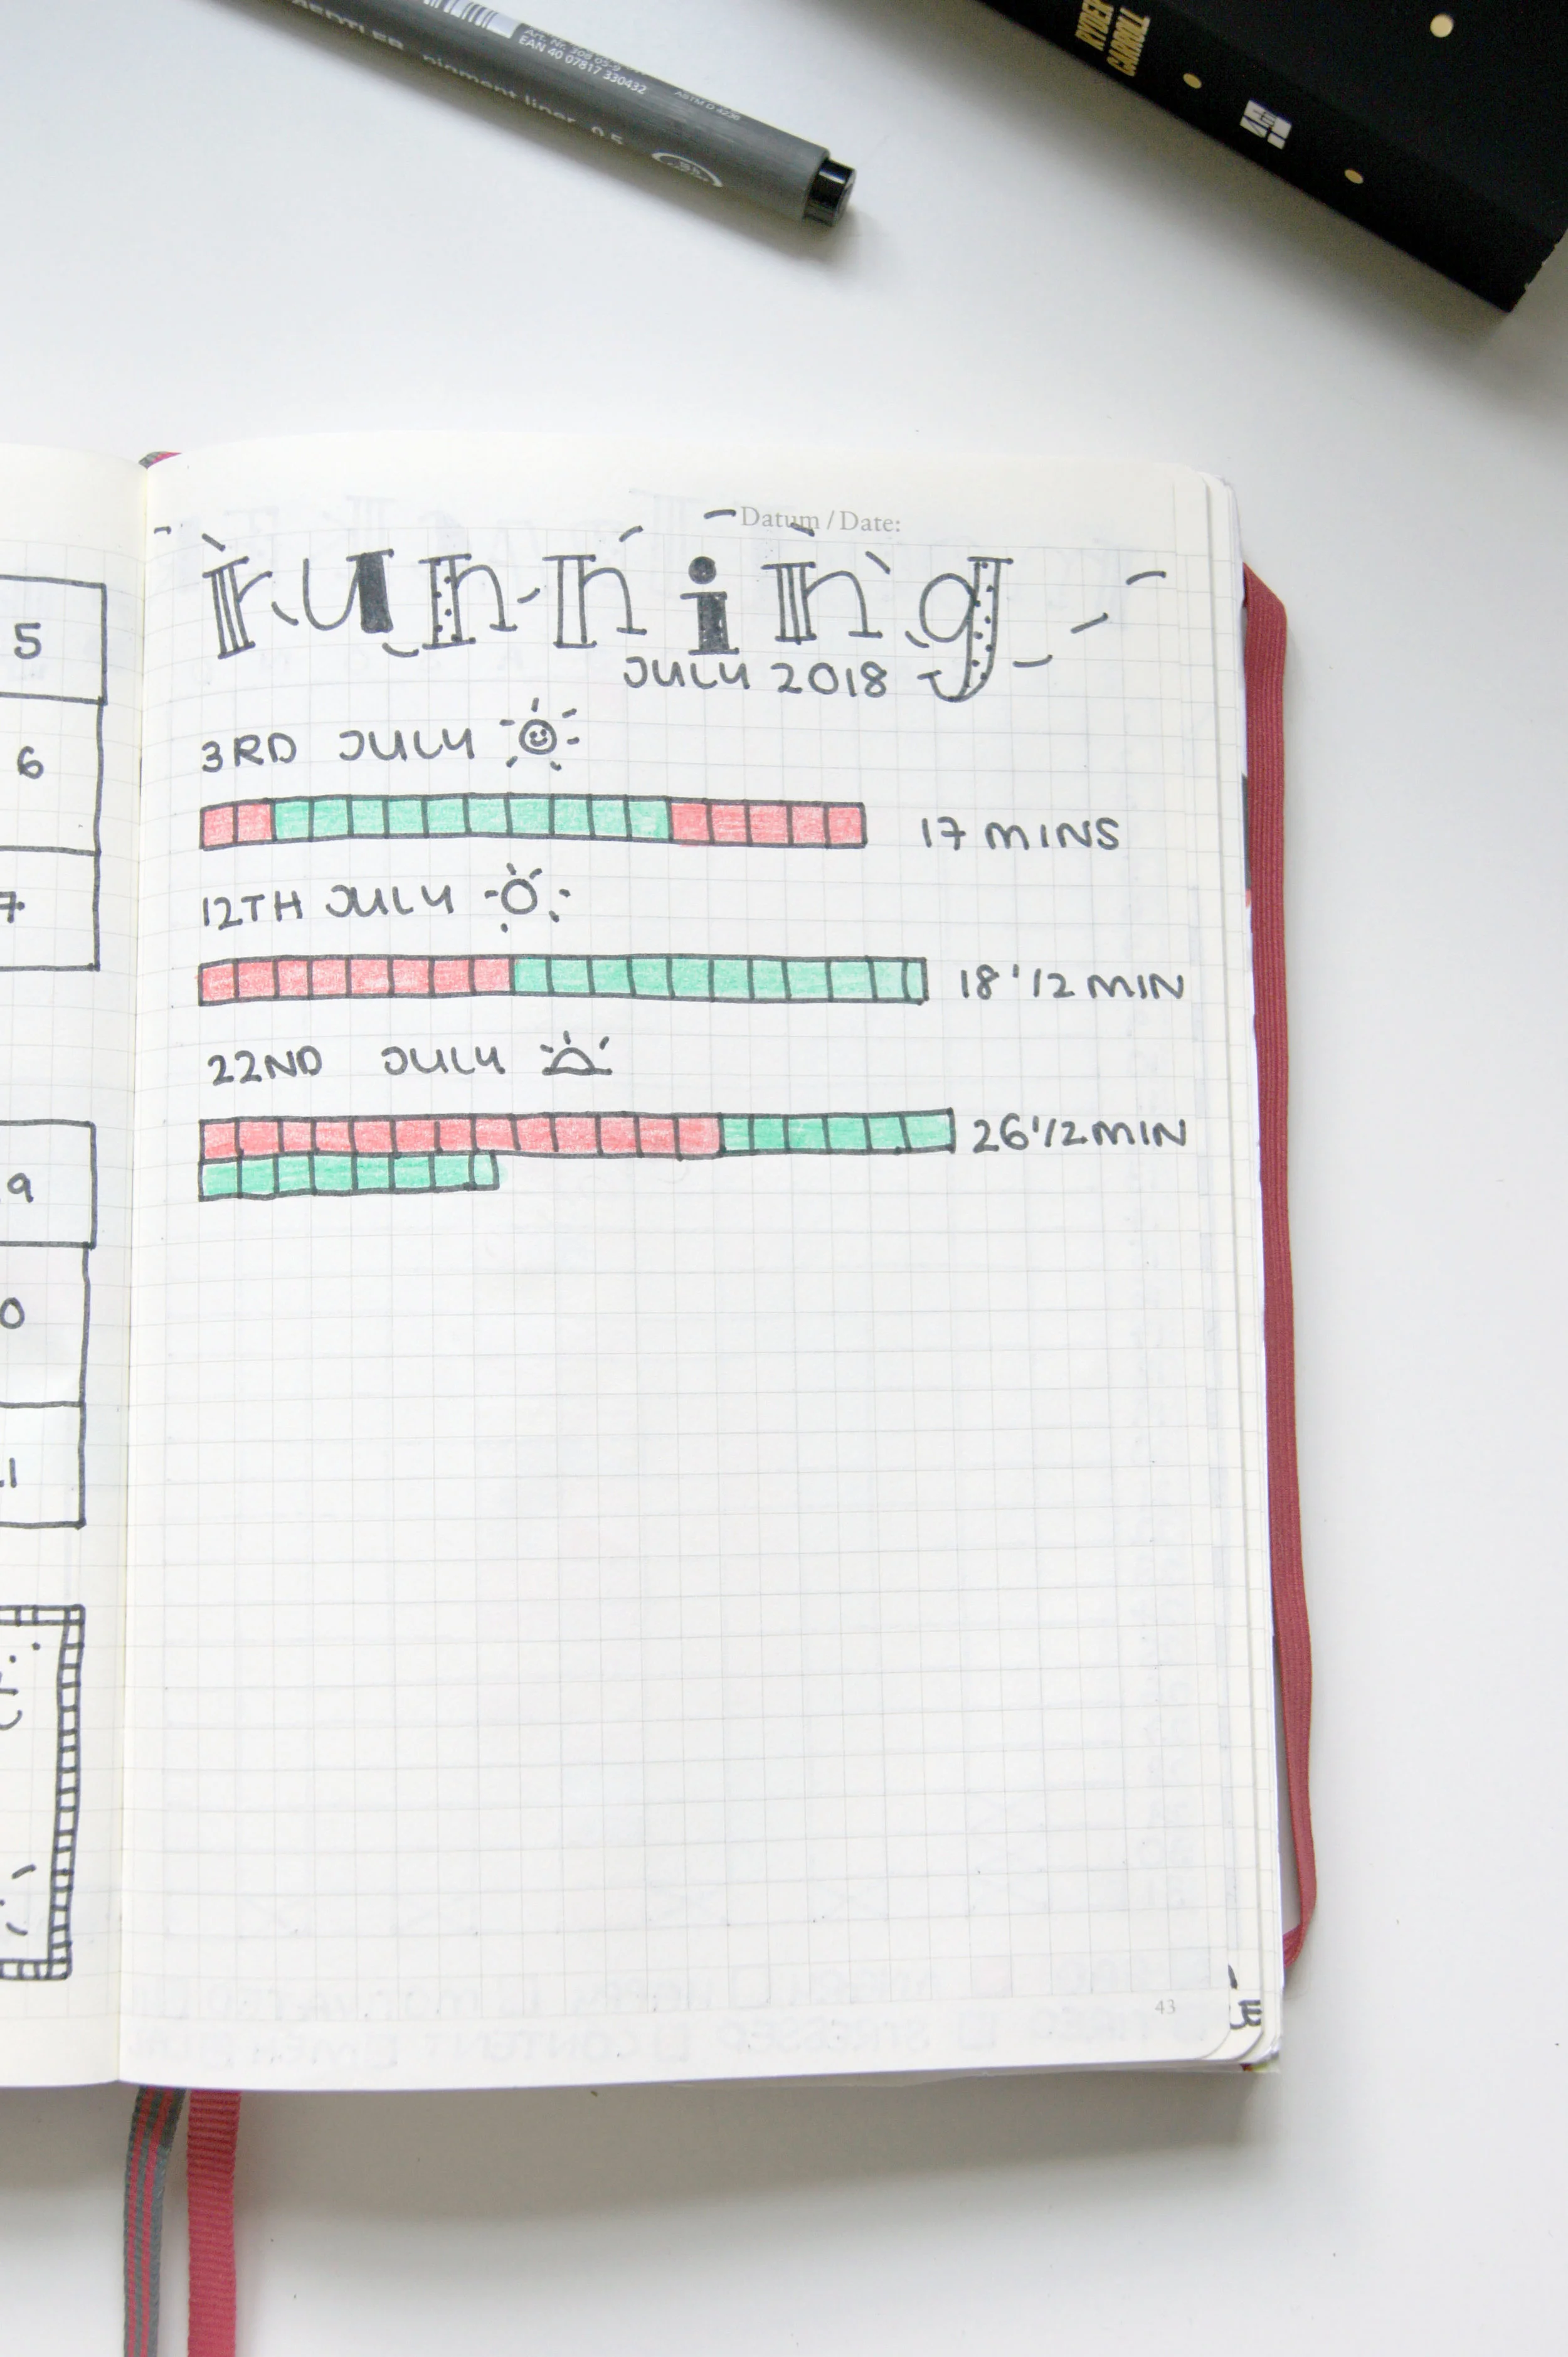 RYDER
CARROLL
Art. Nr. 308 05-9
EAN 40 07817 330432
ASTM D 4236
pigment liner 0.5
Datum / Date:
running
JULY 2018
3RD JULY
17 MINS
12TH JULY
18 1/2 MIN
22ND JULY
26 1/2 MIN
5
6
7
9
0
1
43